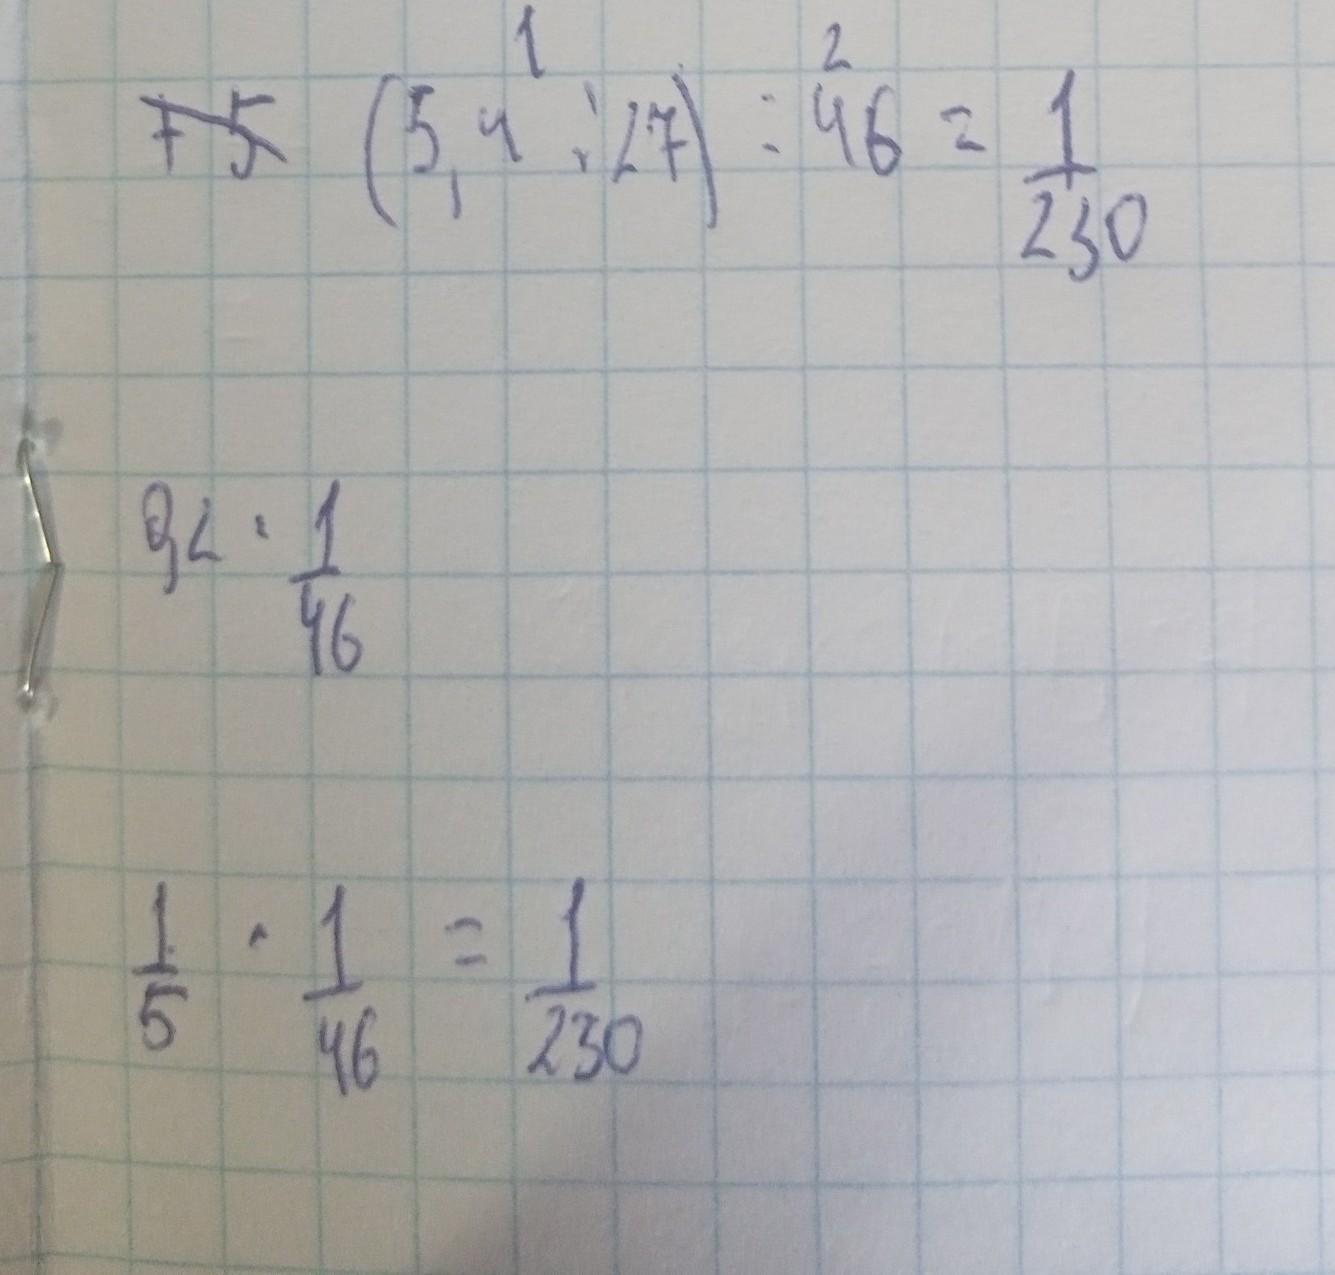 1 2
75 (5,4 : 27) : 46 = 1/230
0,2 · 1/46
1/5 · 1/46 = 1/230